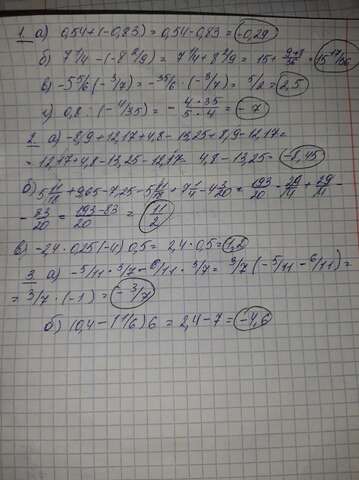 1. а) 0,54+(-0,83)=0,54-0,83=-0,29
б) 7 1/4 - (-8 2/9) = 7 1/4 + 8 2/9 = 15 + (9+8)/36 = 15 17/36
в) -5 5/6 · (-3/7) = -35/6 · (-3/7) = 5/2 = 2,5
г) 0,8 : (-4/35) = - (4·35)/(5·4) = -7
2. а) -8,9+12,17+4,8-13,25+8,9-12,17=
= 12,17+4,8-13,25-12,17= 4,8-13,25=-8,45
193/20 - 29/4 + 29/4 -
- 83/20 = (193-83)/20 = 11/2
в) -2,4·0,25·(-4)·0,5= 2,4·0,5=1,2
3 а) -5/11 · 3/7 - 6/11 · 3/7 = 3/7 (-5/11 - 6/11) =
= 3/7 · (-1) = -3/7
б) (0,4-1 1/6) 6 = 2,4-7=-4,6